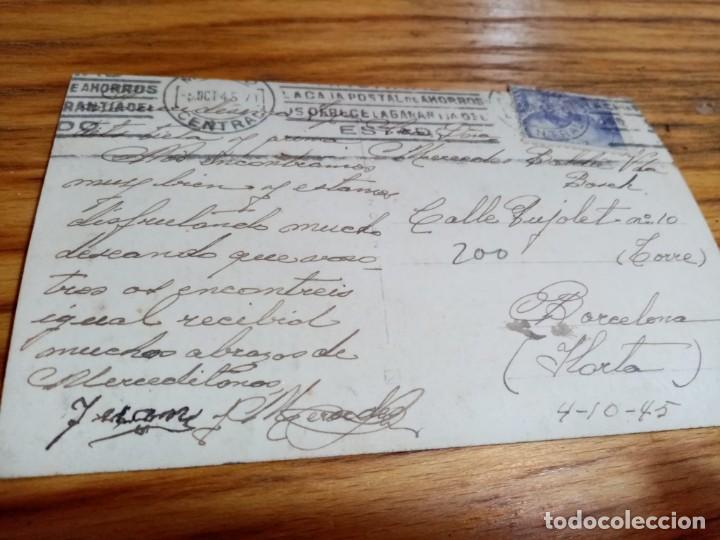 E AHORROS
RANTIA DEL
DO
OCT 45
CENTRAL
LA CAJA POSTAL DE AHORROS
OS OFRECE LA GARANTIA DEL
ESTADO
Nos encontramos
muy bien y estamos
disfrutando mucho
deseando que voso-
tros os encontreis
igual recibid
muchos abrazos de
Merceditonos
y Mercedes
Mercedes Vda
Bosch
Calle Tujolet nº 10
200 (Torre)
Barcelona
(Horta)
4-10-45
todocoleccion
todocoleccion.net